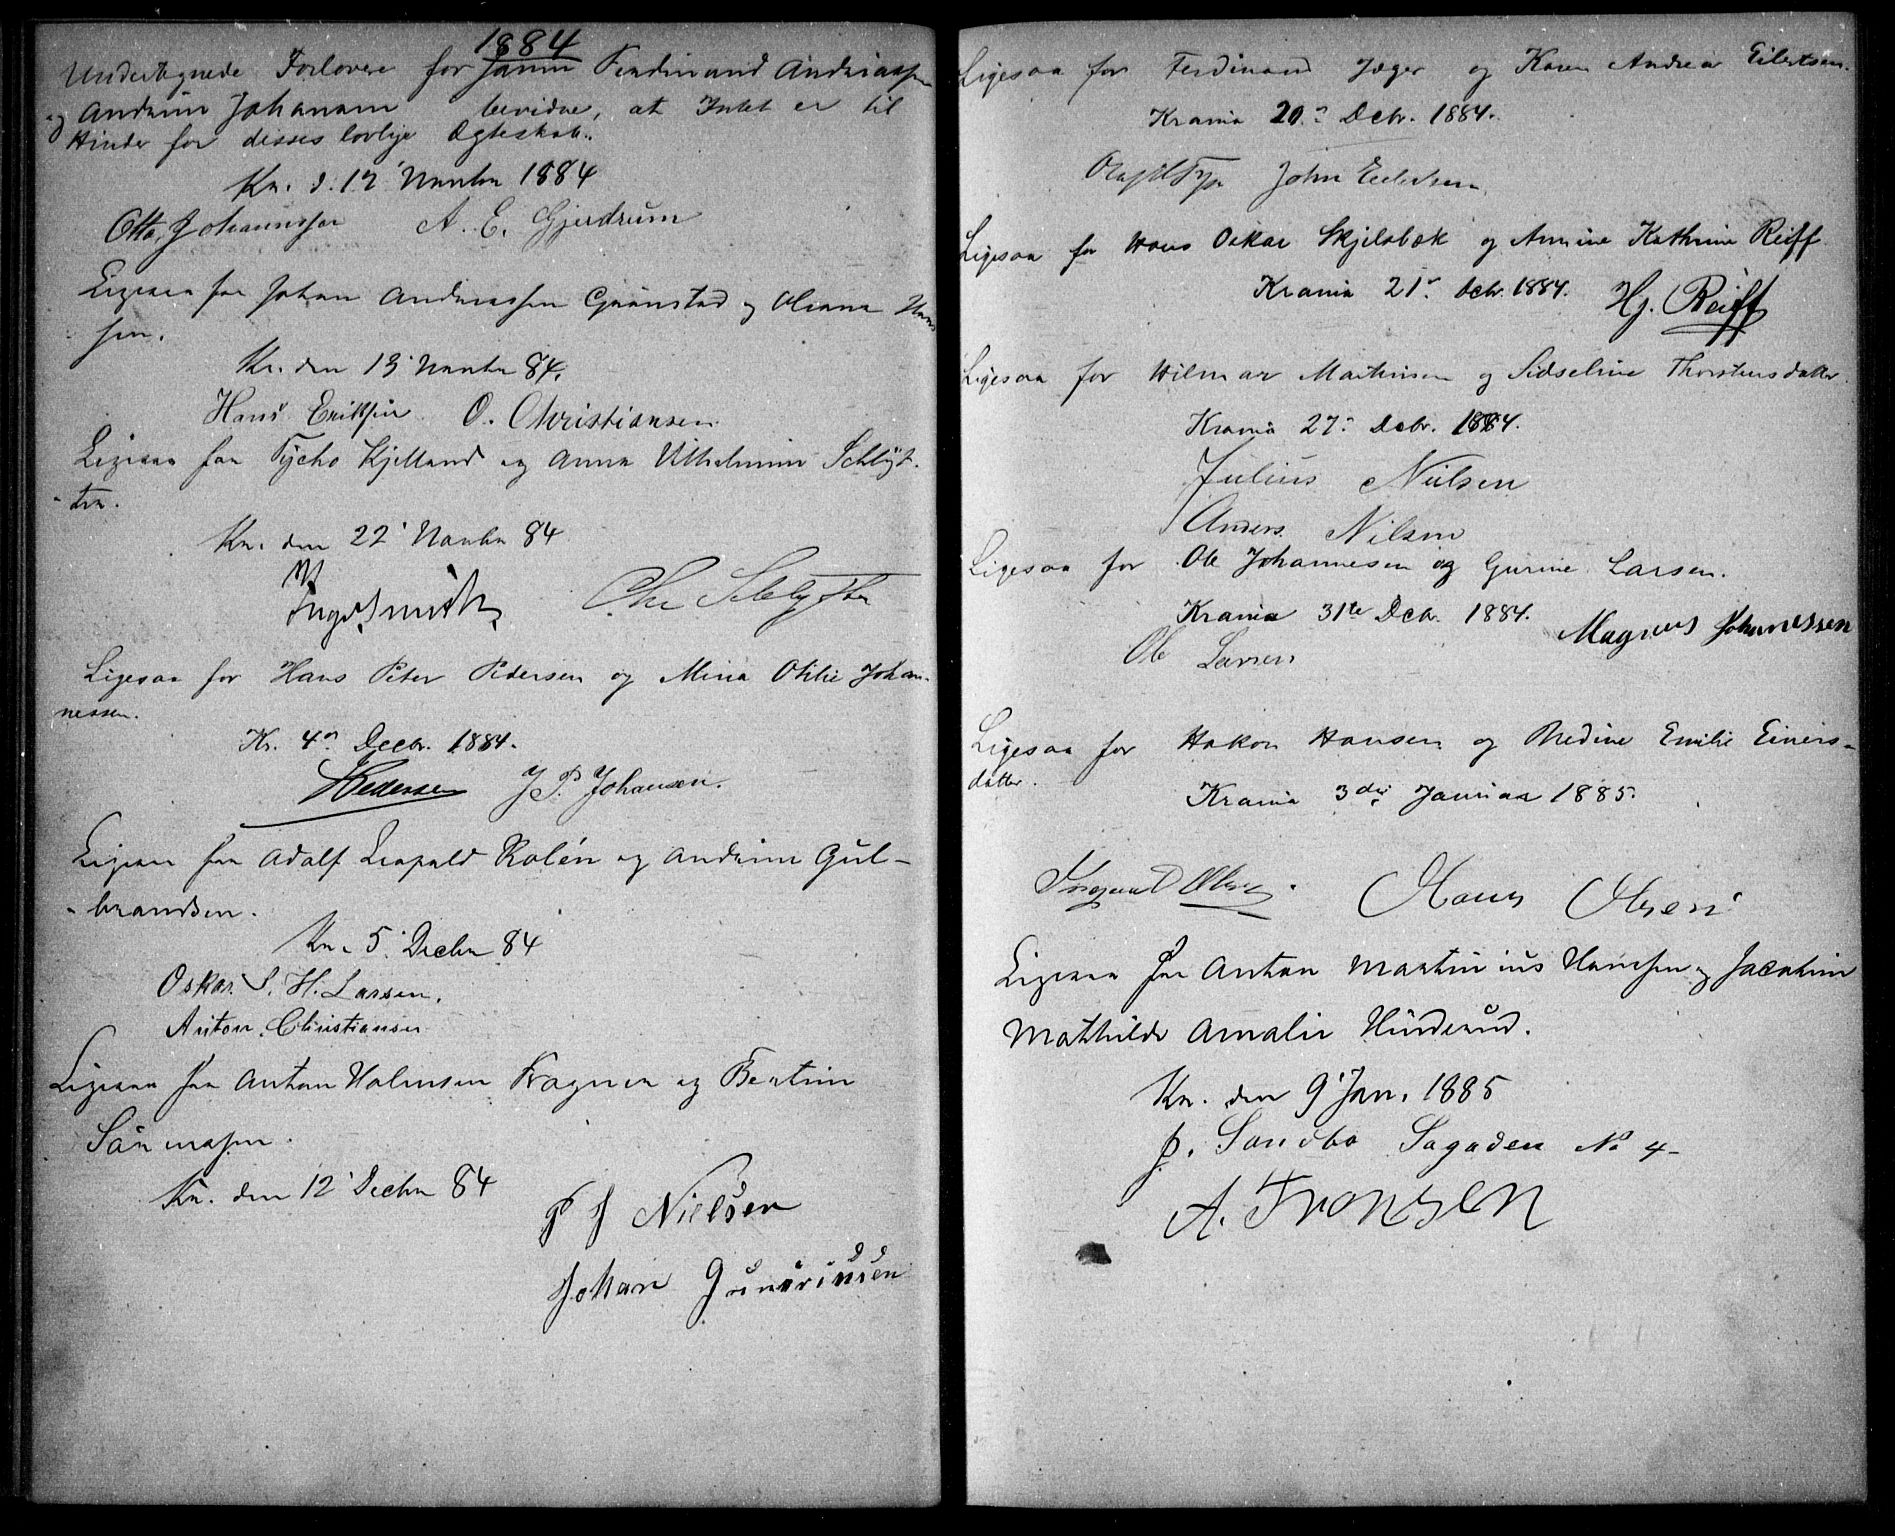 1884
Undertegnede Forlovere for Ferdinand Andreassen
og Andrine Johansen bevidne, at Intet er til
Hinder for disses lovlige Ægteskab.
Kra. d. 12' Novbr 1884
Otto Johannessen A. E. Gjerdrum
Ligesaa for Johan Andreassen Grønstad og Oliana Han
sen.
Kr. den 13' Novbr 84.
Hans Eriksen O. Christiansen
Ligesaa for Tycho Kjelland og Anna Vilhelmine Schlyt-
-ter.
Kra. den 22' Novbr 84
Schlytter
Ligesaa for Hans Peter Pedersen og Mina Otilie Johan-
nessen.
Kr. 4de Decbr. 1884.
HPedersen J. P. Johansen.
Ligesaa for Adolf Leopold Rolén og Andrine Gul-
-brandsen.
Kra. 5' Decbr 84
Oskar. S. H. Larsen.
Anton. Christiansen
Ligesaa for Anton Halvorsen Frogner og Bertine
Kra. den 12' Decbr 84
P J Nielsen
Johan Gundersen
Ligesaa for Ferdinand Jæger og Karen Andrea Eilertsen.
Krania 20de Decbr. 1884.
John Eilertsen
Ligesaa for Hans Oskar Skjelsbæk og Annine Kathrine Reiff
Krania 21de Decbr. 1884. Hj. Reiff
Ligesaa for Hilmar Martinsen og Sidseline Thorstensdatter.
Krania 27de Decbr. 1884.
Julius Nilsen
Anders Nilsen
Ligesaa for Ole Johannesen og Gurine Larsen.
Krania 31te Decbr. 1884. Magnus Johannessen
Ole Larsen
Ligesaa for Hakon Hansen og Bredine Emilie Einers-
datter.
Krania 3die Januar 1885.
Hans Olsen
Ligesaa for Anton Martinius Hansen og Jacobine
Mathilde Amalie Hinderud.
Kra. den 9' Jan. 1885
P. Sandbo Sagaden No 4-
A. Fronsen